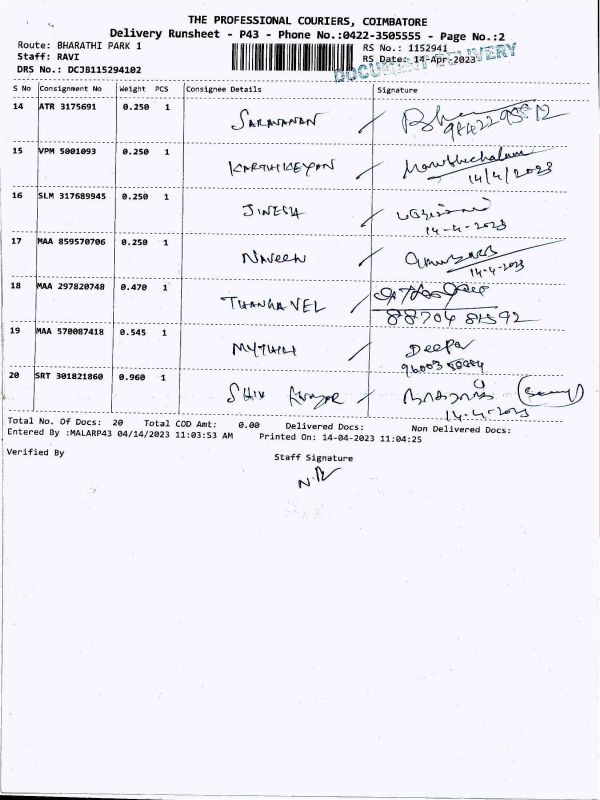 THE PROFESSIONAL COURIERS, COIMBATORE
Delivery Runsheet - P43 - Phone No.:0422-3505555 - Page No.:2
Route: BHARATHI PARK 1
RS No.: 1152941
Staff: RAVI
RS Date: 14-Apr-2023
DRS No.: DCJB115294102
DOCUMENT DELIVERY
S No Consignment No Weight PCS Consignee Details Signature
14 ATR 3175691 0.250 1 SARAVANAN
15 VPM 5001093 0.250 1 KARTHIKEYAN
14/4/2023
16 SLM 317689945 0.250 1 JINESH
14-4-2023
17 MAA 859570706 0.250 1 NAVEEN
14-4-2023
18 MAA 297820748 0.470 1 THANGAVEL
19 MAA 570087418 0.545 1 MYTHILI Deepa
20 SRT 301821860 0.960 1 SHIV
14-4-2023
Total No. Of Docs: 20 Total COD Amt: 0.00 Delivered Docs: Non Delivered Docs:
Entered By :MALARP43 04/14/2023 11:03:53 AM Printed On: 14-04-2023 11:04:25
Verified By
Staff Signature